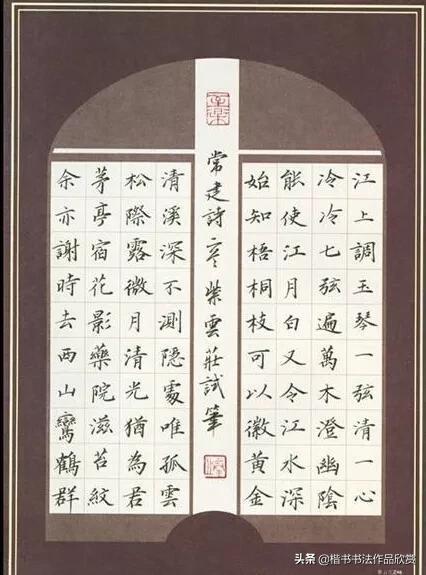 江上調玉琴一弦清一心
冷冷七弦遍萬木澄幽陰
能使江月白又令江水深
始知梧桐枝可以徽黃金
常建詩紫雲莊試筆
清溪深不測隱處唯孤雲
松際露微月清光猶為君
茅亭宿花影藥院滋苔紋
余亦謝時去西山鸞鶴群
头条 @楷书书法作品欣赏